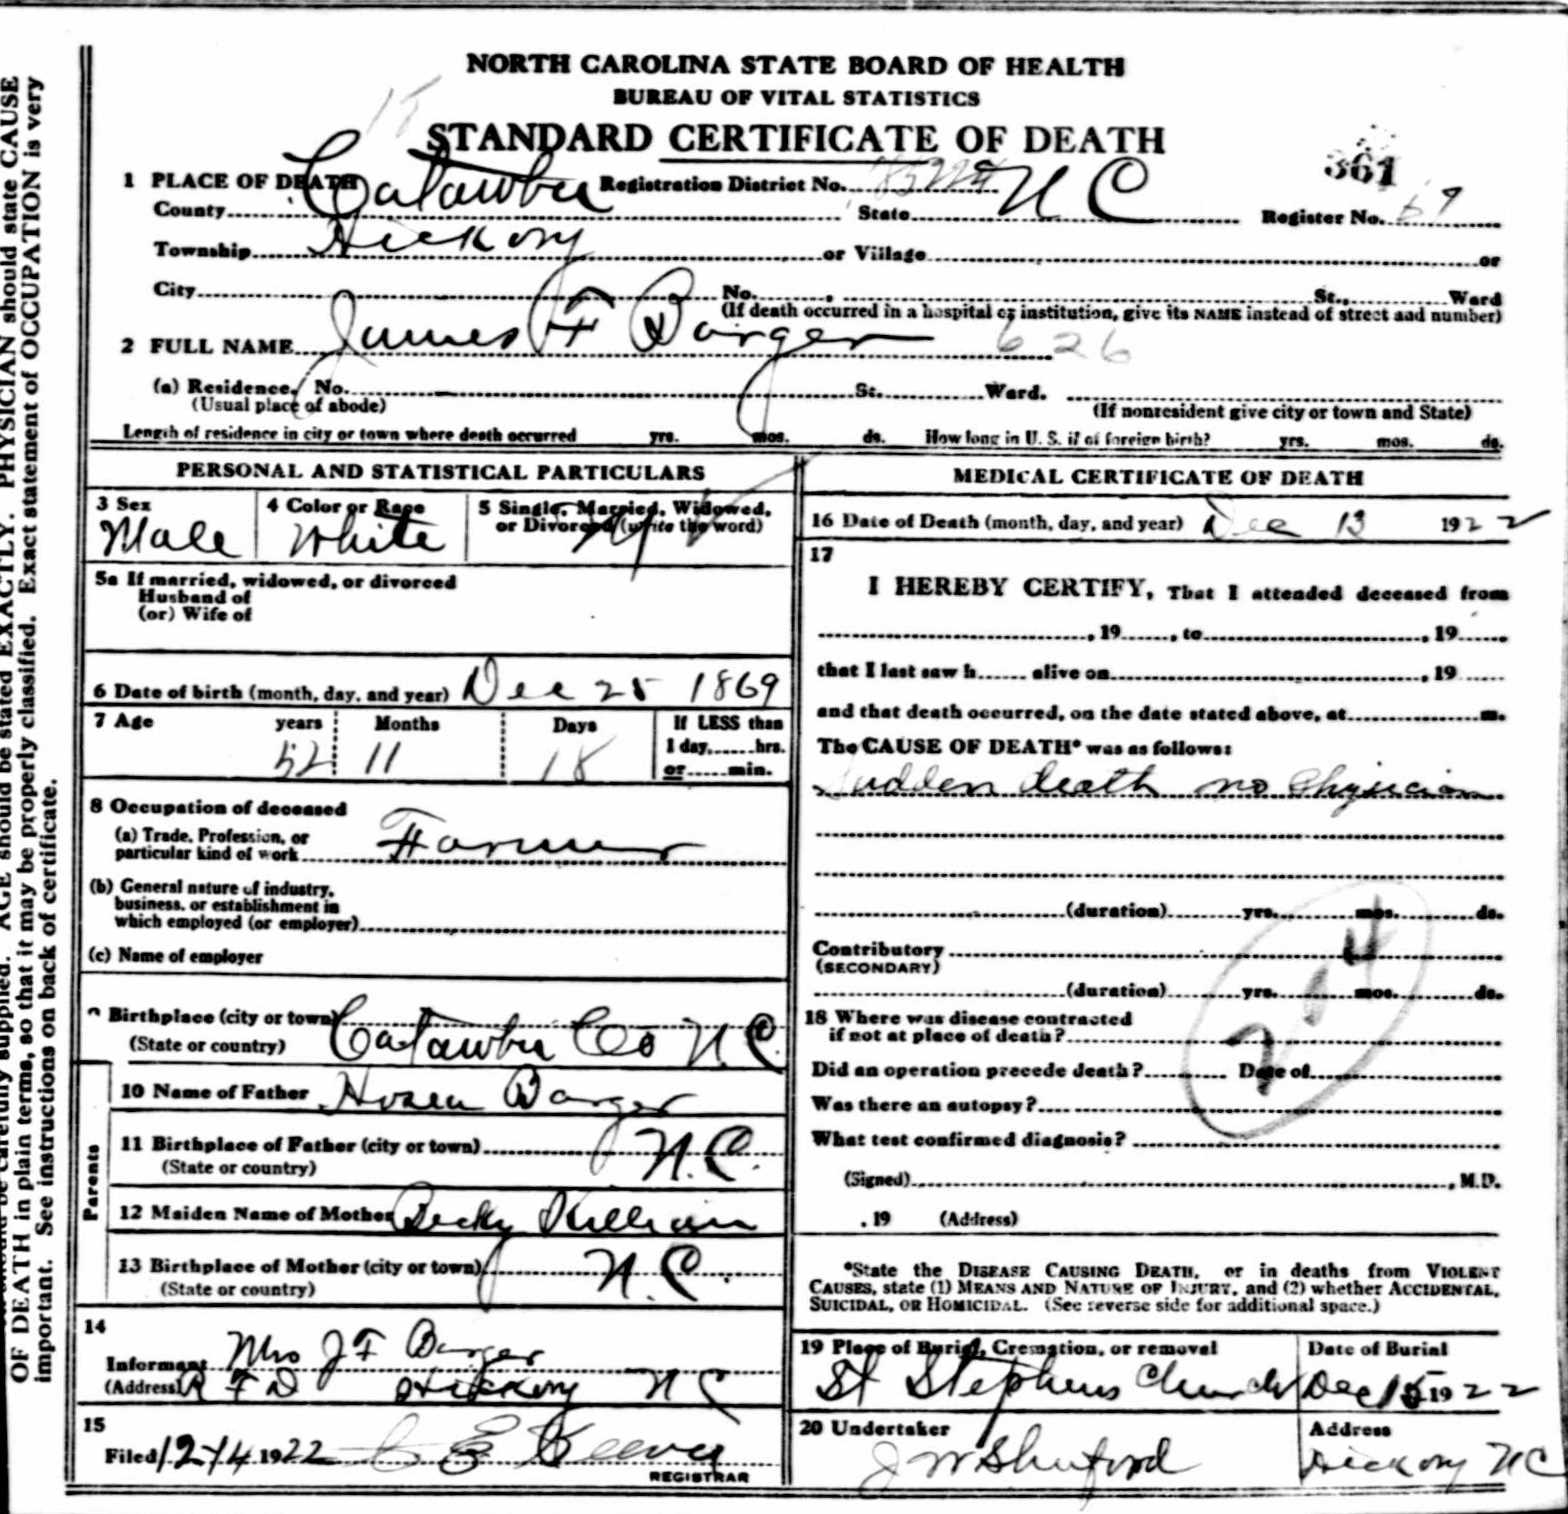 NORTH CAROLINA STATE BOARD OF HEALTH
BUREAU OF VITAL STATISTICS
STANDARD CERTIFICATE OF DEATH
361
1 PLACE OF DEATH Registration District No.
County Catawba State N C Register No. 69
Township Hickory or Village or
City No. St., Ward
(If death occurred in a hospital or institution, give its NAME instead of street and number)
2 FULL NAME James F Barger 626
(a) Residence. No. St. Ward.
(Usual place of abode) (If nonresident give city or town and State)
Length of residence in city or town where death occurred yrs. mos. ds. How long in U. S. if of foreign birth? yrs. mos. ds.
PERSONAL AND STATISTICAL PARTICULARS
3 Sex 4 Color or Race 5 Single, Married, Widowed, or Divorced (write the word)
Male White M
5a If married, widowed, or divorced
Husband of
(or) Wife of
6 Date of birth (month, day, and year) Dec 25 1869
7 Age years Months Days If LESS than
1 day, hrs.
or min.
52 11 18
8 Occupation of deceased
(a) Trade, Profession, or
particular kind of work Farmer
(b) General nature of industry,
business, or establishment in
which employed (or employer)
(c) Name of employer
9 Birthplace (city or town) Catawba Co N.C.
(State or country)
Parents
10 Name of Father Hosea Barger
11 Birthplace of Father (city or town) N.C.
(State or country)
12 Maiden Name of Mother Becky Killian
13 Birthplace of Mother (city or town) N.C.
(State or country)
14
Informant Mrs J F Barger
(Address) R F D Hickory N C
15
Filed 12-14 1922
REGISTRAR
MEDICAL CERTIFICATE OF DEATH
16 Date of Death (month, day, and year) Dec 13 1922
17
I HEREBY CERTIFY, That I attended deceased from
, 19 , to , 19
that I last saw h alive on , 19
and that death occurred, on the date stated above, at m.
The CAUSE OF DEATH* was as follows:
Sudden death no Physician
(duration) yrs. mos. ds.
Contributory
(SECONDARY)
(duration) yrs. mos. ds.
18 Where was disease contracted
if not at place of death?
Did an operation precede death? Date of
Was there an autopsy?
What test confirmed diagnosis?
(Signed) , M.D.
, 19 (Address)
*State the DISEASE CAUSING DEATH, or in deaths from VIOLENT
CAUSES, state (1) MEANS AND NATURE OF INJURY, and (2) whether ACCIDENTAL,
SUICIDAL, OR HOMICIDAL. (See reverse side for additional space.)
19 Place of Burial, Cremation, or removal Date of Burial
St Stephens Church Dec 15 1922
20 Undertaker Address
J W Shuford Hickory N C
should be carefully supplied. AGE should be stated EXACTLY. PHYSICIAN should state CAUSE
OF DEATH in plain terms, so that it may be properly classified. Exact statement of OCCUPATION is very
important. See instructions on back of certificate.